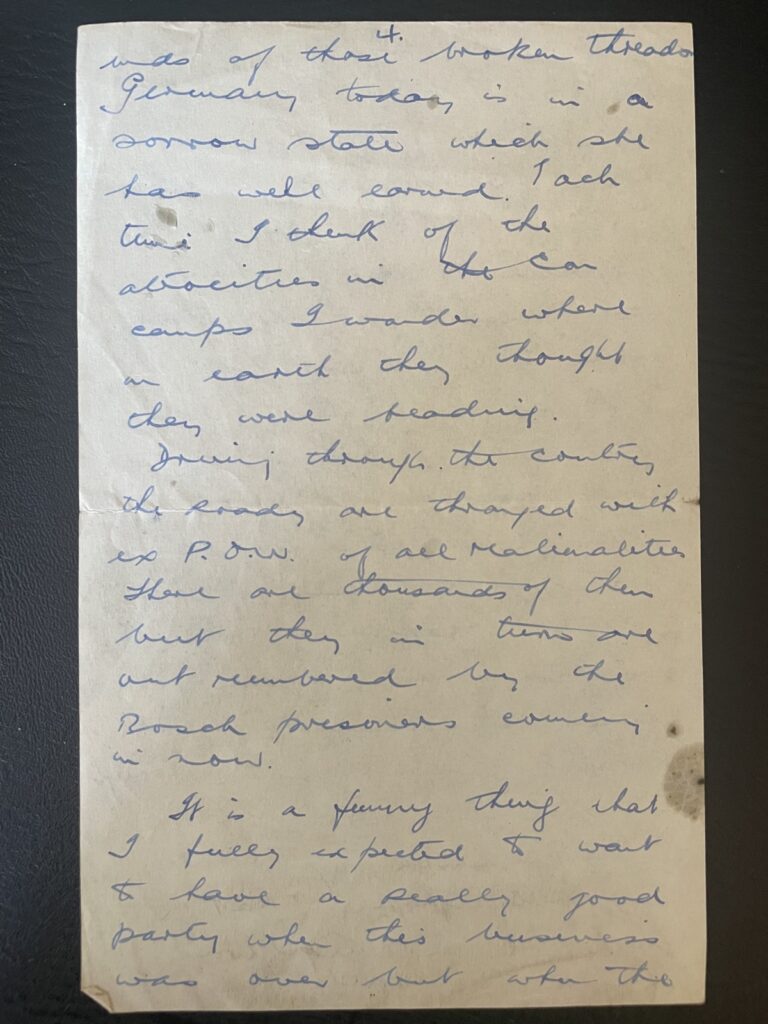 4.
ends of those broken threads
Germany today is in a
sorrow state which she
has well earned. Each
time I think of the
atrocities in the Con
camps I wonder where
on earth they thought
they were heading.
Driving through the country
the roads are thronged with
ex P.O.W. of all nationalities
There are thousands of them
but they in turn are
out numbered by the
Bosch prisoners coming
in now.
It is a funny thing that
I fully expected to want
to have a really good
party when this business
was over but when the